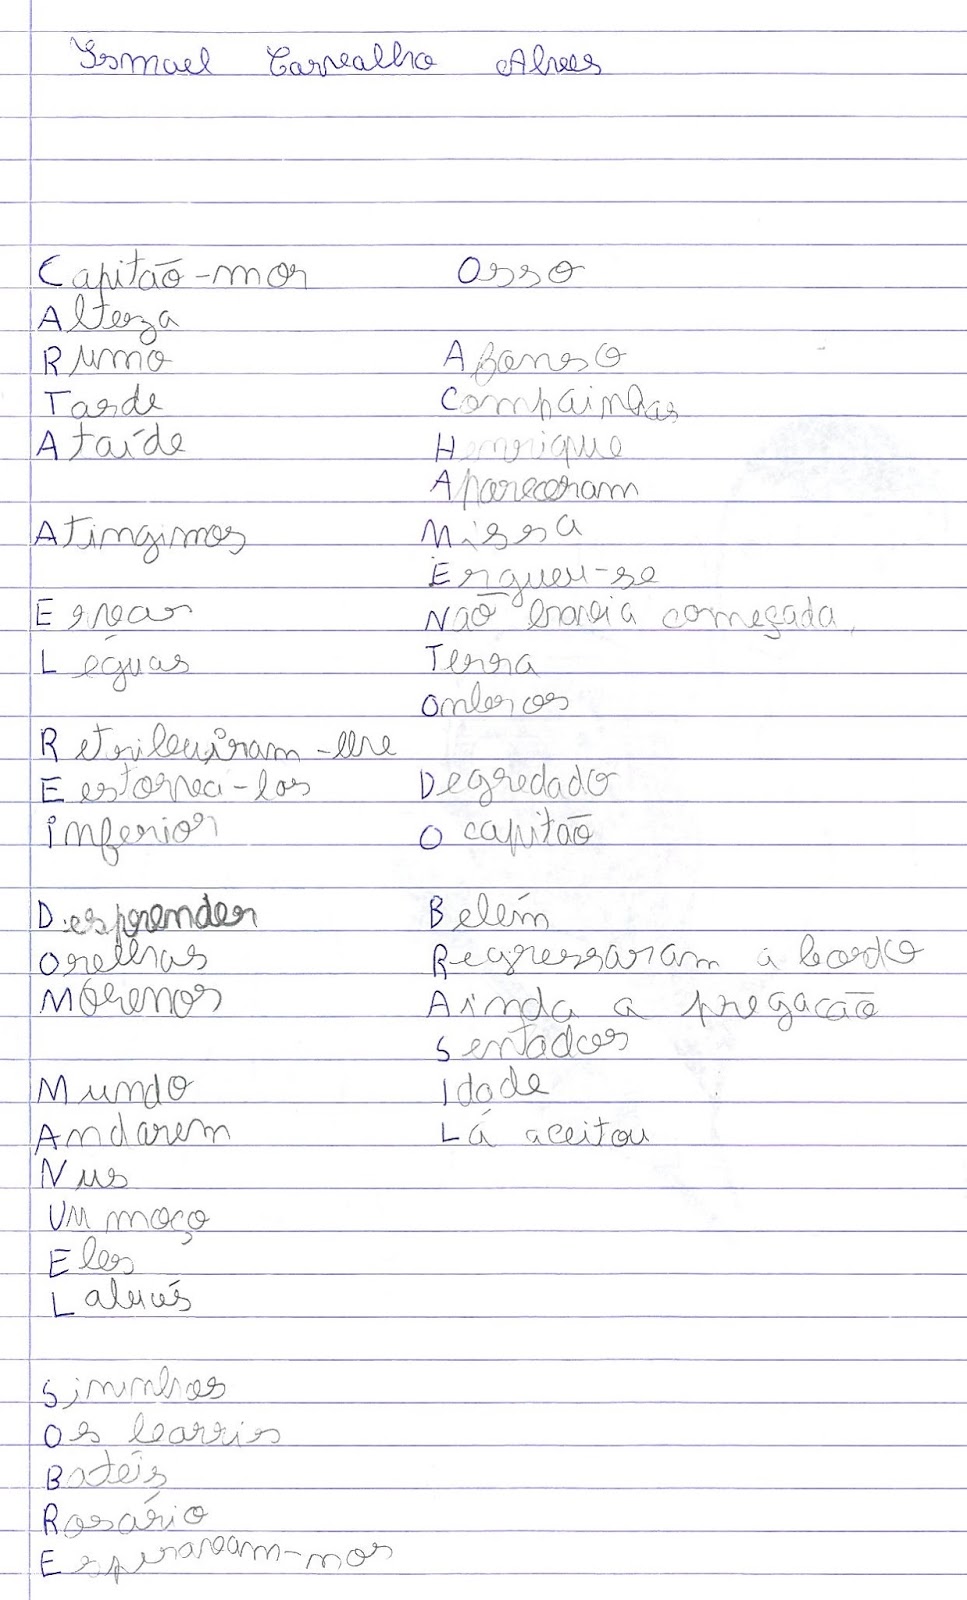 Ismael Carvalho Alves
Capitão-mor
Alteza
Rumo
Tarde
Ataíde
Atingimos
Ervas
Léguas
Retribuiram-lhe
E estorná-los
inferior
Desprender
orelhas
Morenos
Mundo
Andarem
Nus
UM moço
Eles
L
Sininhos
Os barris
Batéis
Rosário
Esperavam-nos
Osso
Afonso
Compainhas
Henrique
Apareceram
Missa
Ergueu-se
Não havia começada
Terra
ombros
Degredado
O capitão
Belém
Regressaram a bordo
Ainda a pregacão
Sentados
Idade
Lá aceitou